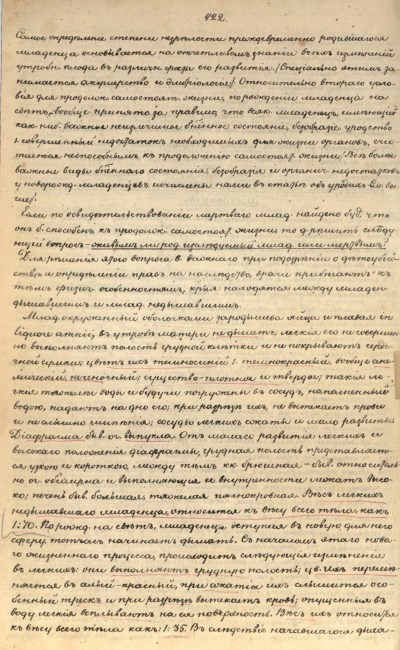 422.
Самое опредѣленіе степени зрѣлости преждевременно родившагося
младенца основывается на отчетливомъ знаніи всѣхъ измѣненій
утробн. плода въ различн. сроки его развитія. (Спеціально этимъ за-
нимается акушерство и эмбріологія). Относительно втораго усло-
вія для продолж. самостоят. жизни, по рожденіи младенца на
свѣтъ, вообще принято за правило, что всяк. младенецъ, имѣющій
какое-ниб. важное неизлечимое болѣзнен. состояніе, безобразіе, уродство
и совершенный недостатокъ необходимыхъ для жизни органовъ, счи-
тается неспособнымъ къ продолженію самостоят. жизни. Всѣ болѣе
важные виды болѣзненнаго состоянія, безобразія и органич. недостатковъ
у новорожд. младенцевъ исчислены нами въ статьѣ объ уродствѣ
ше).
Если по освидѣтельствованіи мертваго млад. найдено буд. что
онъ б. способенъ къ продолж. самостоят. жизни то д. рѣшить слѣду-
ющій вопросъ - живымъ ли род. изслѣдуемый млад. или мертвымъ?
Для рѣшенія этого вопроса в. важнаго при подозрѣніи о дѣтоубій-
ствѣ и опредѣленіи правъ на наслѣдство, врачи прибѣгаютъ къ
тѣмъ физич. особенностямъ, какія находятся между младен.
дышавшимъ и млад. недышавшимъ.
Млад. окруженный оболочками зародышева яйца и плавая въ
liquore amnii, въ утробѣ матери не дышетъ, легкія его не совершен-
но выполняютъ полость грудной клѣтки и не покрываютъ сердеч-
ной сумки; цвѣтъ ихъ темносиній l. темнокрасный, вообще ане-
мическій, печеночный; существо плотное и твердое; такія ле-
гкія тяжелѣе воды и будучи погружены въ сосудъ, наполненный
водою, падаютъ на дно его; при разрѣзѣ ихъ, не вытекаетъ крови
и не слышно шипѣнія; сосуды легкихъ сжаты и мало развиты.
Діафрагма быв. оч. выпукла. Отъ малаго развитія легкихъ и
высокаго положенія діафрагмы, грудная полость представляет-
ся узкою и короткою, между тѣмъ к. брюшная - быв. относитель-
но оч. обширна и выполняющія ее внутренности лежатъ высо-
ко; печень быв. большая, тяжелая полнокровная. Вѣсъ легкихъ
недышавшаго младенца, относится къ вѣсу всего тѣла, какъ
1:70. По рожд. на свѣтъ, младенецъ вступая въ новую для него
сферу, тотчасъ начинаетъ дышать. Съ началомъ этого нова-
го жизненнаго процесса, происходитъ слѣдующія измѣненія
въ легкихъ: они выполняютъ грудную полость; цв. ихъ перемѣ-
няется въ алый-красный, при сжатіи ихъ слышится осо-
бенный трескъ и при разрѣзѣ вытекаетъ кровь; опущенныя въ
воду легкія всплываютъ на ея поверхность. Вѣсъ ихъ относится
къ вѣсу всего тѣла какъ: 1:35. Въ слѣдствіе начавшагося дыха-